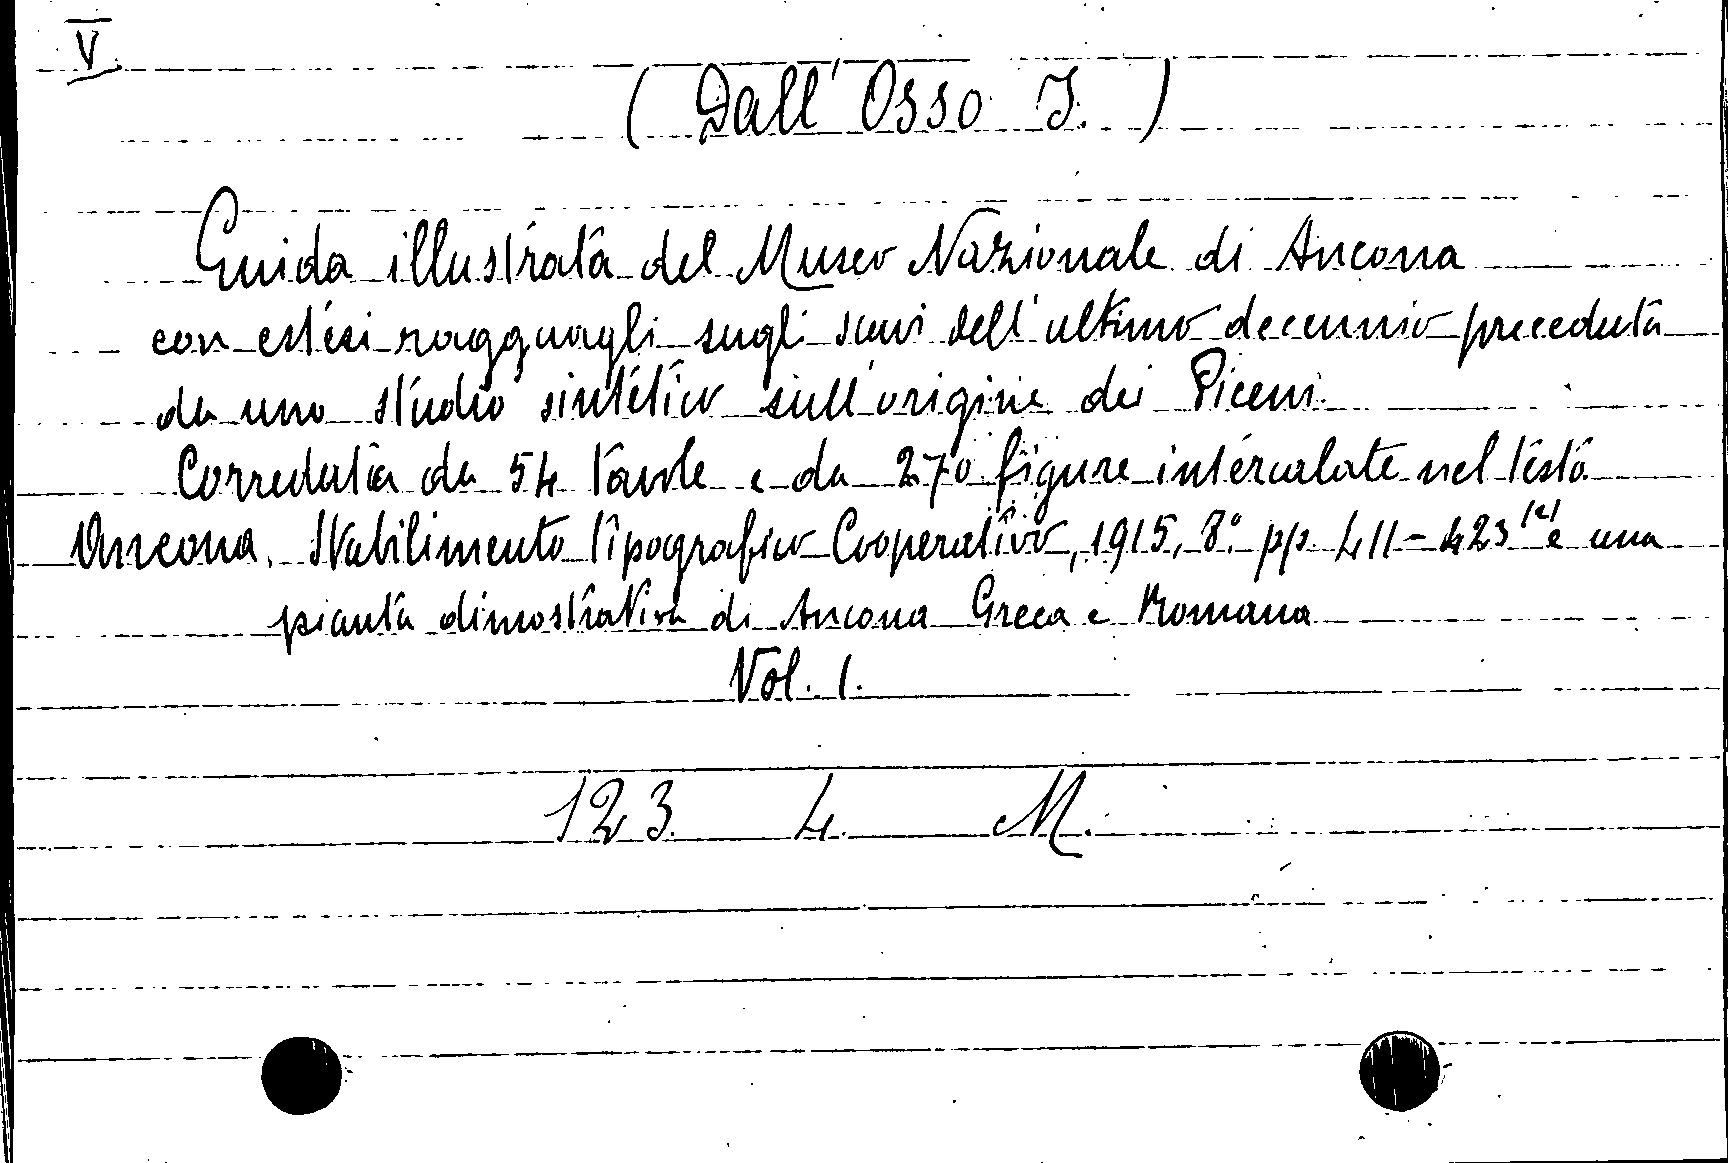 V.
( Dall' Osso I. )
Guida illustrata del Museo Nazionale di Ancona
con estesi ragguagli sugli scavi dell'ultimo decennio preceduta
da uno studio sintetico sull'origine dei Piceni.
Corredata da 54 tavole e da 270 figure intercalate nel testo
Ancona. Stabilimento tipografico Cooperativo, 1915, 8° pp. 411-423 e una
pianta dimostrativa di Ancona Greca e Romana
Vol. 1.
123 4. M.